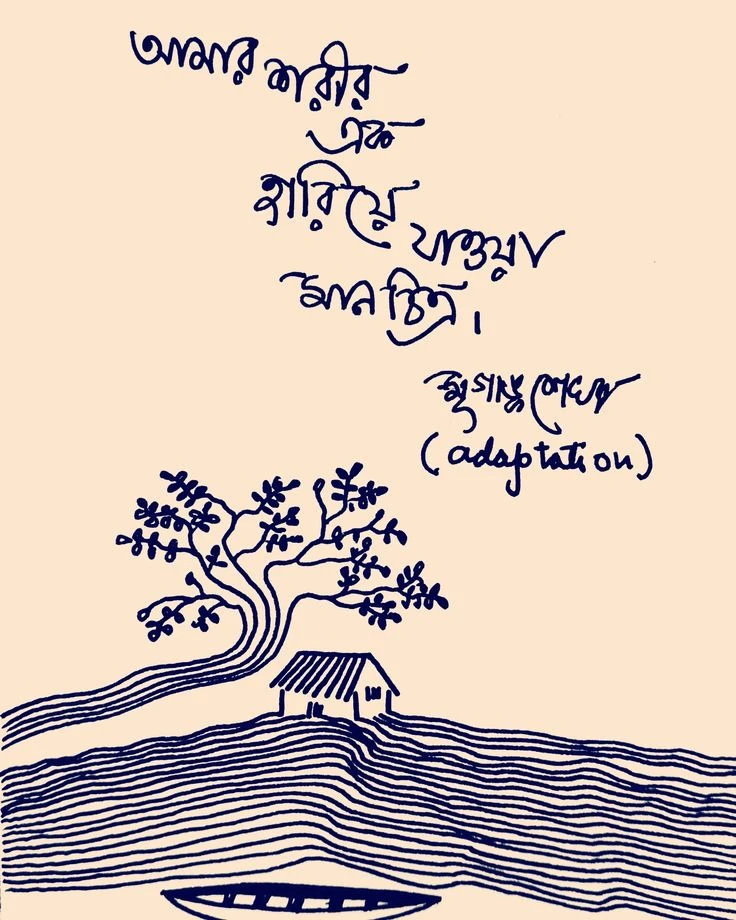 আমার শরীর
এক
হারিয়ে যাওয়া
মানচিত্র।
মৃগাঙ্কশেখর
(adaptation)